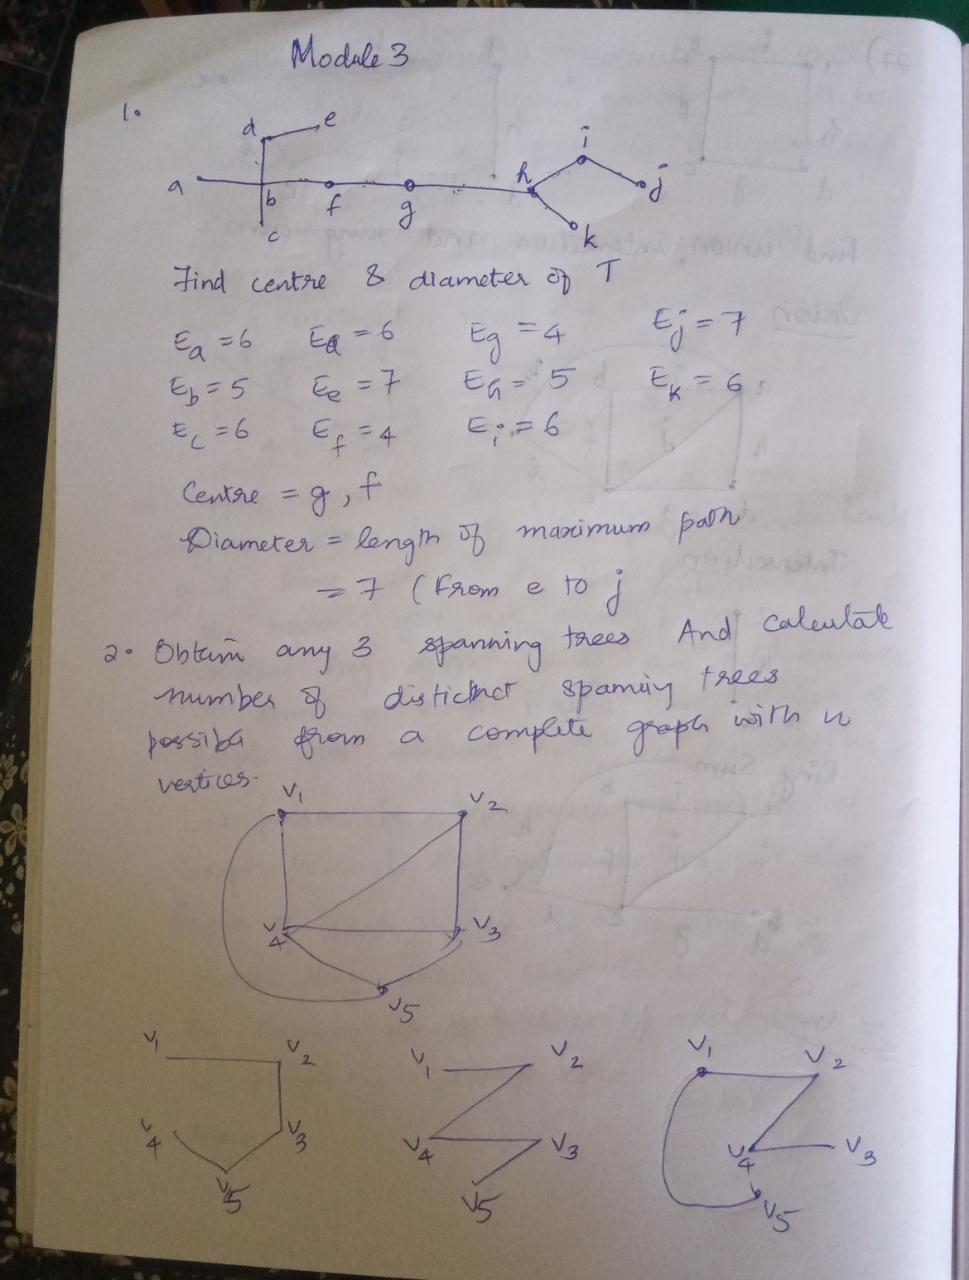 Module 3
1.
d e
i
a b f g h j
c k
Find centre & diameter of T
Ea = 6 Ed = 6 Eg = 4 Ej = 7
Eb = 5 Ee = 7 Eh = 5 Ek = 6
Ec = 6 Ef = 4 Ei = 6
Centre = g, f
Diameter = length of maximum path
= 7 (From e to j
2. Obtain any 3 spanning trees And calculate
number of distictnct spanniy trees
possiba from a complete graph with n
vertices.
V1 V2
V4 V3
V5
V1 V2 V1 V2 V1 V2
V4 V3 V4 V3 V4 V3
V5 V5 V5